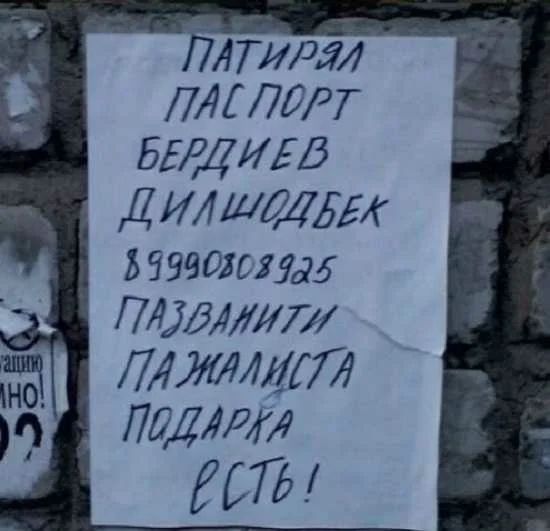 ПАТИРЯЛ
ПАСПОРТ
БЕРДИЕВ
ДИЛШОДБЕК
89990808925
ПАЗВАНИТИ
ПАЖАЛИСТА
ПОДАРКА
ЕСТЬ!